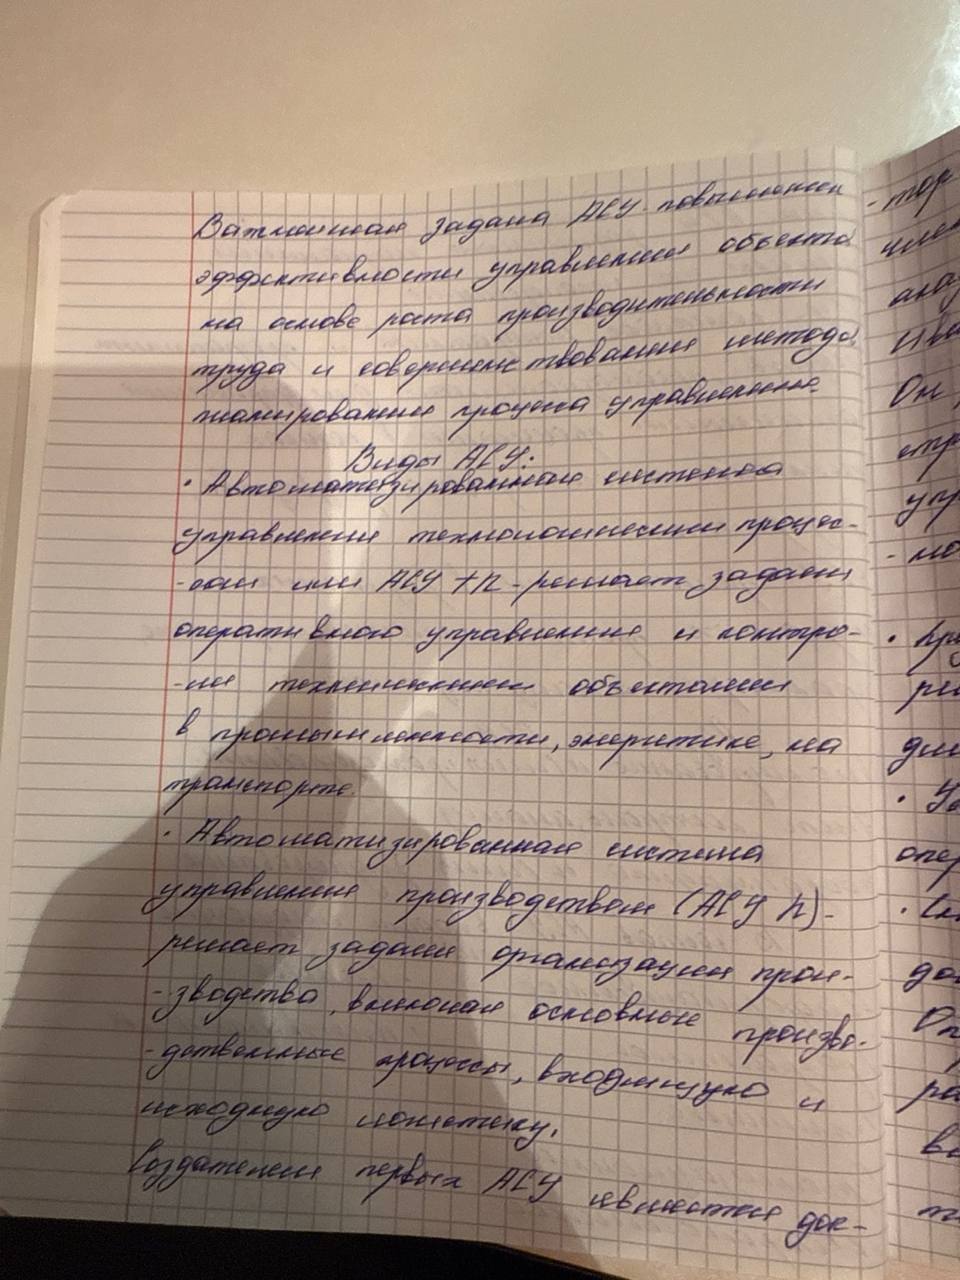 Важнейшая задача АСУ - повышение
эффективности управления объекта
на основе роста производительности
труда и совершенствования метода
планирования процесса управления.
Виды АСУ:
• Автоматизированная система
управления технологическими процес-
-сами или АСУ ТП - решает задачи
оперативного управления и контро-
-ля техническими объектами
в промышленности, энергетике, на
транспорте.
• Автоматизированная система
управления производством (АСУ П) -
решает задачи организации прои-
-зводства, включая основные произво-
-дственные процессы, входящую и
исходную логистику.
Создателем первых АСУ является док-
- тор
Он
упр
• Пр
ре
дл
опер